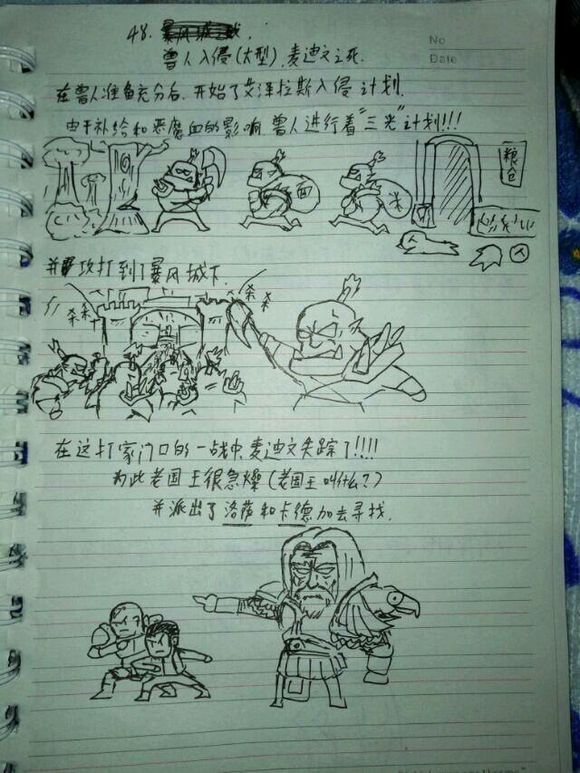 48.
No
兽人入侵(大型),麦迪文之死.
Date
在兽人准备充分后,开始了艾泽拉斯入侵计划.
由于补给和恶魔血的影响 兽人进行着"三光"计划!!!
粮仓
面
米
人
并攻打到了暴风城下.
杀杀
杀杀
在这打家门口的一战中,麦迪文失踪了!!!!
为此老国王很急燥(老国王叫什么?)
并派出了洛萨和卡德加去寻找.